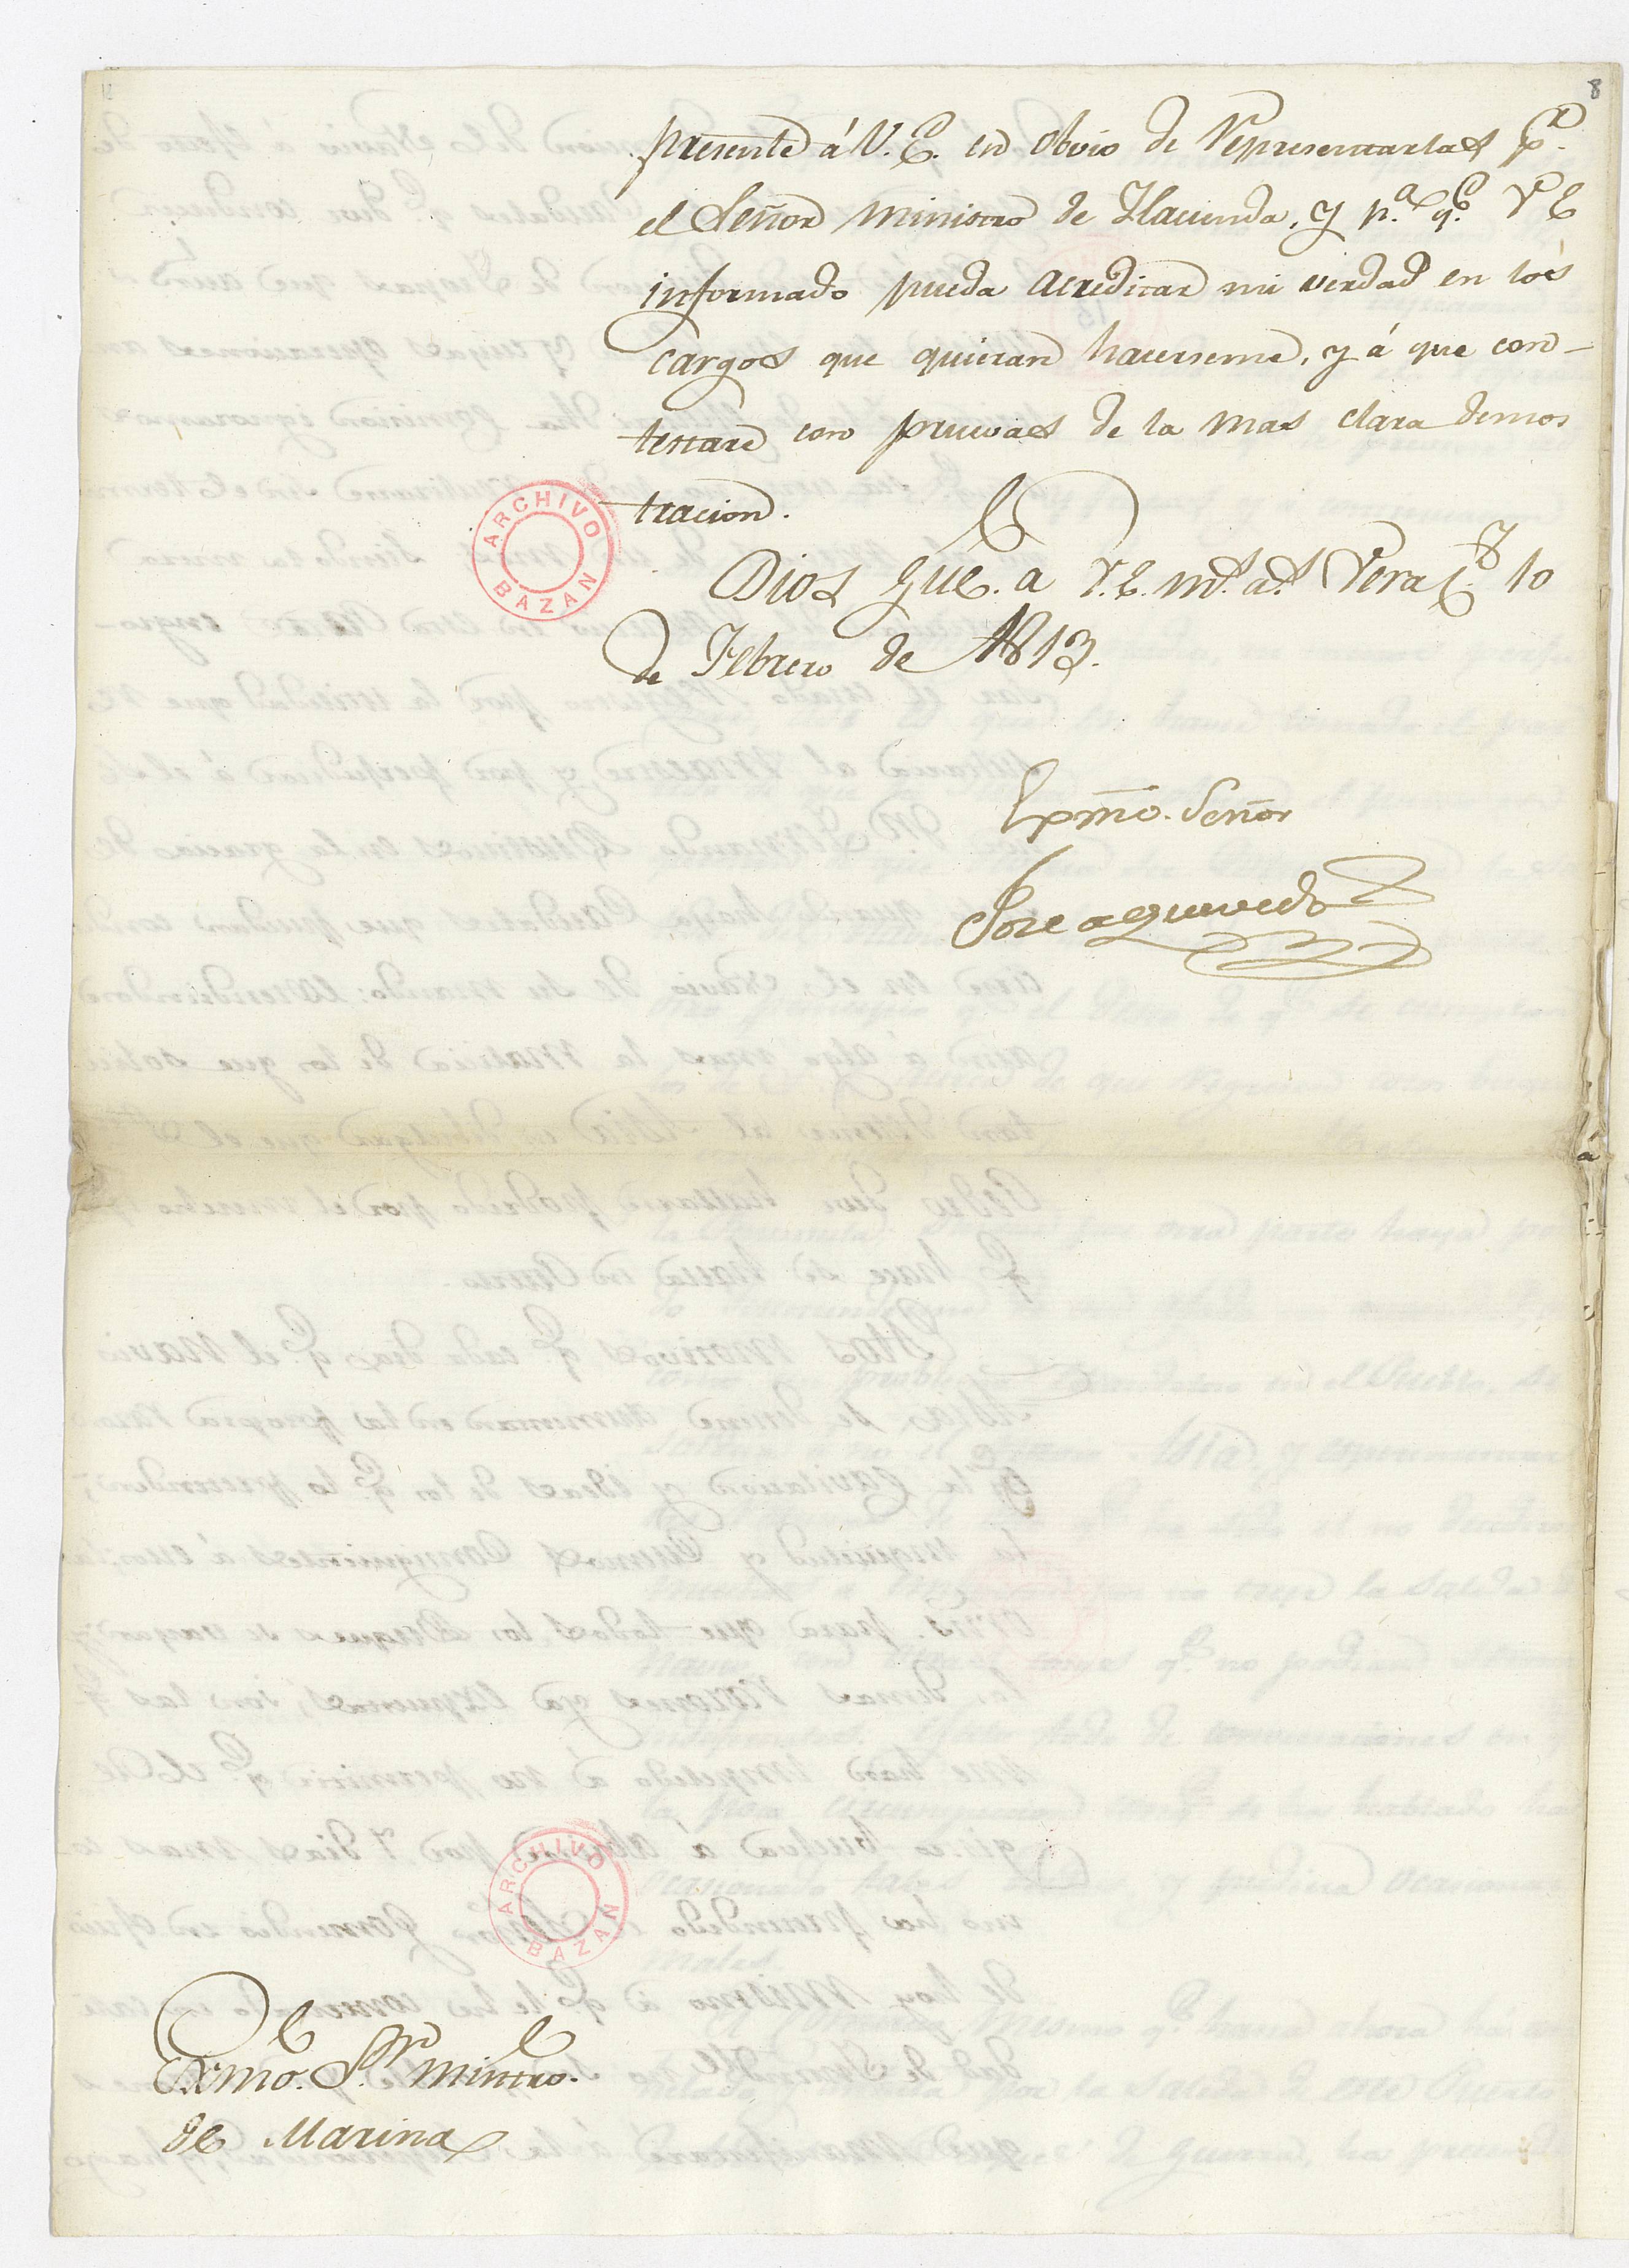 8
presente á V.E. en obvio de representarlas pr.
el Señor ministro de Hacienda, y p.a q.e V E
informado pueda acreditar mi verdad en los
cargos que quieran hacerseme, y á que con-
testare con pruevas de la mas clara demos
tracion.
Dios gue. a V.E. m.s a.s Vera C.z 10
de Febrero de 1813.
Exmõ. Señor
Jose a Quevedo
ARCHIVO BAZAN
ARCHIVO BAZAN
Exmo. S.or Mintro.
de Marina